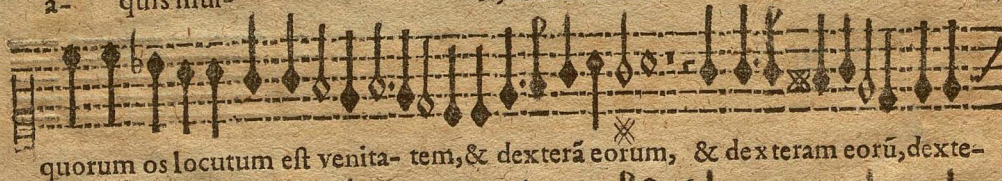 a- quis
quorum os locutum est venita- tem,& dexterã eorum, & dexteram eorũ,dexte-